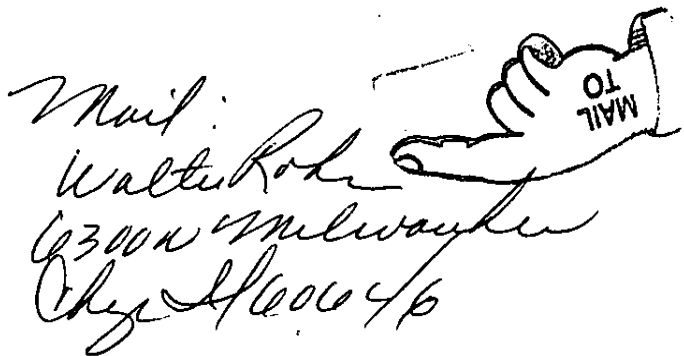 MAIL
TO
Mail:
Walter
6300 N Milwaukee
Chgo Ill 60646